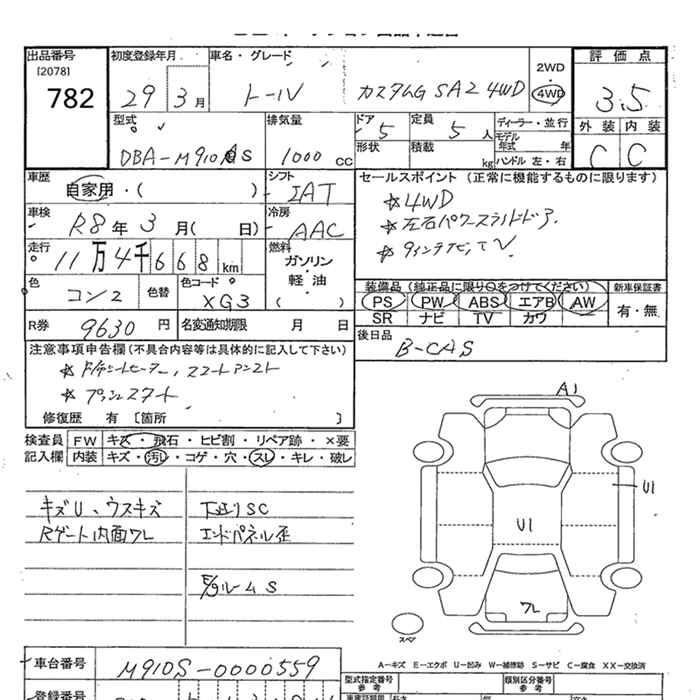 出品番号 初度登録年月 車名・グレード 評価点
[2078]
782 29 3月 トール カスタムG SA2 4WD 2WD 4WD 3.5
型式 排気量 ドア 定員 ディーラー・並行 外装 内装
DBA-M910AS 1000 cc 5 5人 モデル年式 年 C C
形状 積載 kg ハンドル 左・右
車歴 自家用・( ) シフト IAT セールスポイント(正常に機能するものに限ります)
車検 R8年3月( 日) 冷房 AAC ☆4WD
☆左右パワースライドドア
走行 11万4千668km 燃料 ガソリン・軽油( ) ☆9インチナビ、TV
色 コン2 色替 色コード XG3 装備品(純正品に限り○をつけてください) 新車保証書
PS PW ABS エアB AW 有・無
SR ナビ TV カワ
R券 9630円 名変通知期限 月 日 後日品
B-CAS
注意事項申告欄(不具合内容等は具体的に記入して下さい)
☆ドラシートヒーター,スマートアシスト
☆プッシュスタート
修復歴 有 〔箇所 〕
検査員 FW キズ・飛石・ヒビ割・リペア跡・×要
記入欄 内装 キズ・汚レ・コゲ・穴・スレ・キレ・破レ
キズU、ウスキズ 下廻りSC
Rゲート内面ワレ エンドパネル歪
E/gルームS
A1
U1
U1
ワレ
スペア
A-キズ E-エクボ U-凹み W-補修跡 S-サビ C-腐食 XX-交換済
車台番号 M910S-0000559 型式指定番号 参考 類別区分番号 参考
登録番号